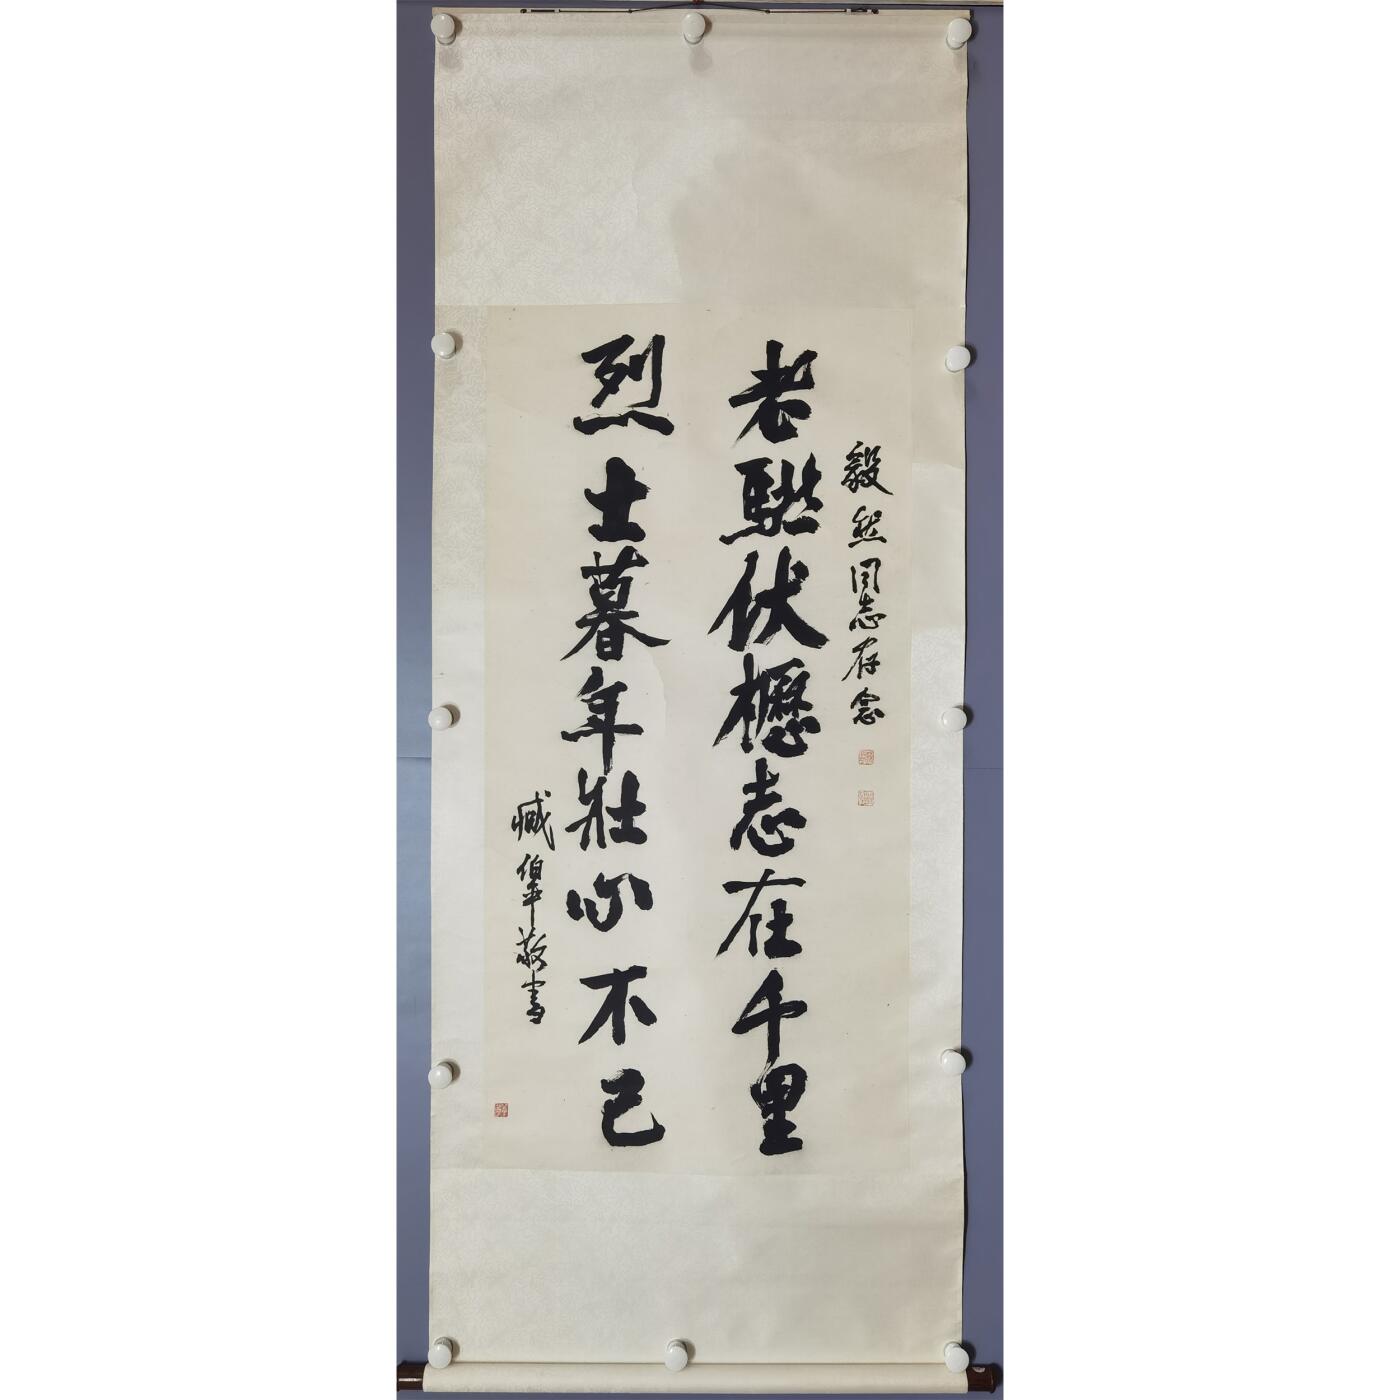 毅然同志存念
老驥伏櫪志在千里
烈士暮年壯心不已
臧伯平敬書